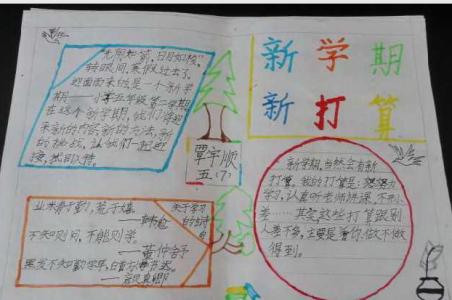 光阴如箭，日月如梭
转眼间，寒假过去了，
迎面而来的是一个新学
期——小学五年级第二学期
在这个新学期，我们将迎
来新的内容，新的方法，新
的挑战，让我们一起迎
接
新学期
新打算
覃宇顺
五、(7)
新学期，当然会有新
打算，我的打算是：
学习，认真听老师讲课，不开小
差……其实这些打算跟别
人差不多，主要是看你做不做
得到。
业精于勤，荒于嬉
——韩愈
关于学习
的名言
不知则问，不能则学。
——董仲舒
黑发不知勤学早，白首方悔读书迟。
——颜真卿